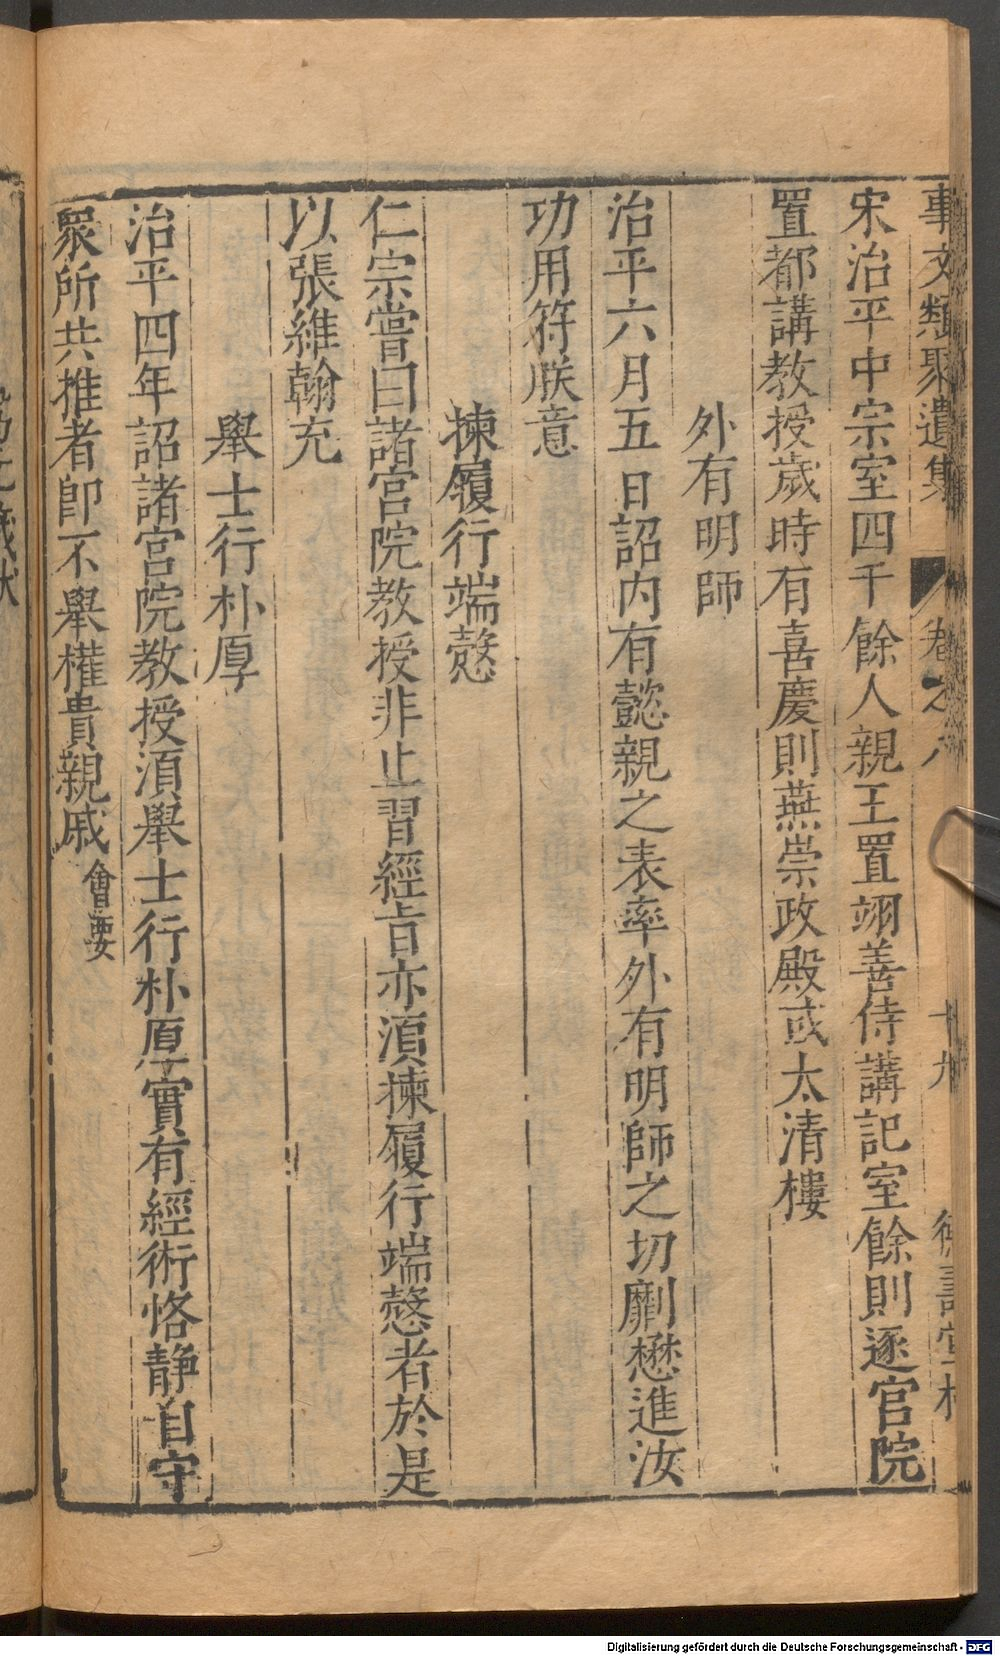 事文類聚遺集 卷之八 十九 德壽堂梓
宋治平中宗室四千餘人親王置翊善侍講記室餘則逐官院
置都講教授歲時有喜慶則燕崇政殿或太清樓
外有明師
治平六月五日詔内有懿親之表率外有明師之切劘懋進汝
功用符朕意
揀履行端愨
仁宗嘗曰諸宫院教授非止習經㫖亦湏揀履行端愨者於是
以張維翰充
舉士行朴厚
治平四年詔諸宫院教授湏舉士行朴厚實有經術恪静自守
衆所共推者卽不舉權貴親戚 會要
Digitalisierung gefördert durch die Deutsche Forschungsgemeinschaft - DFG